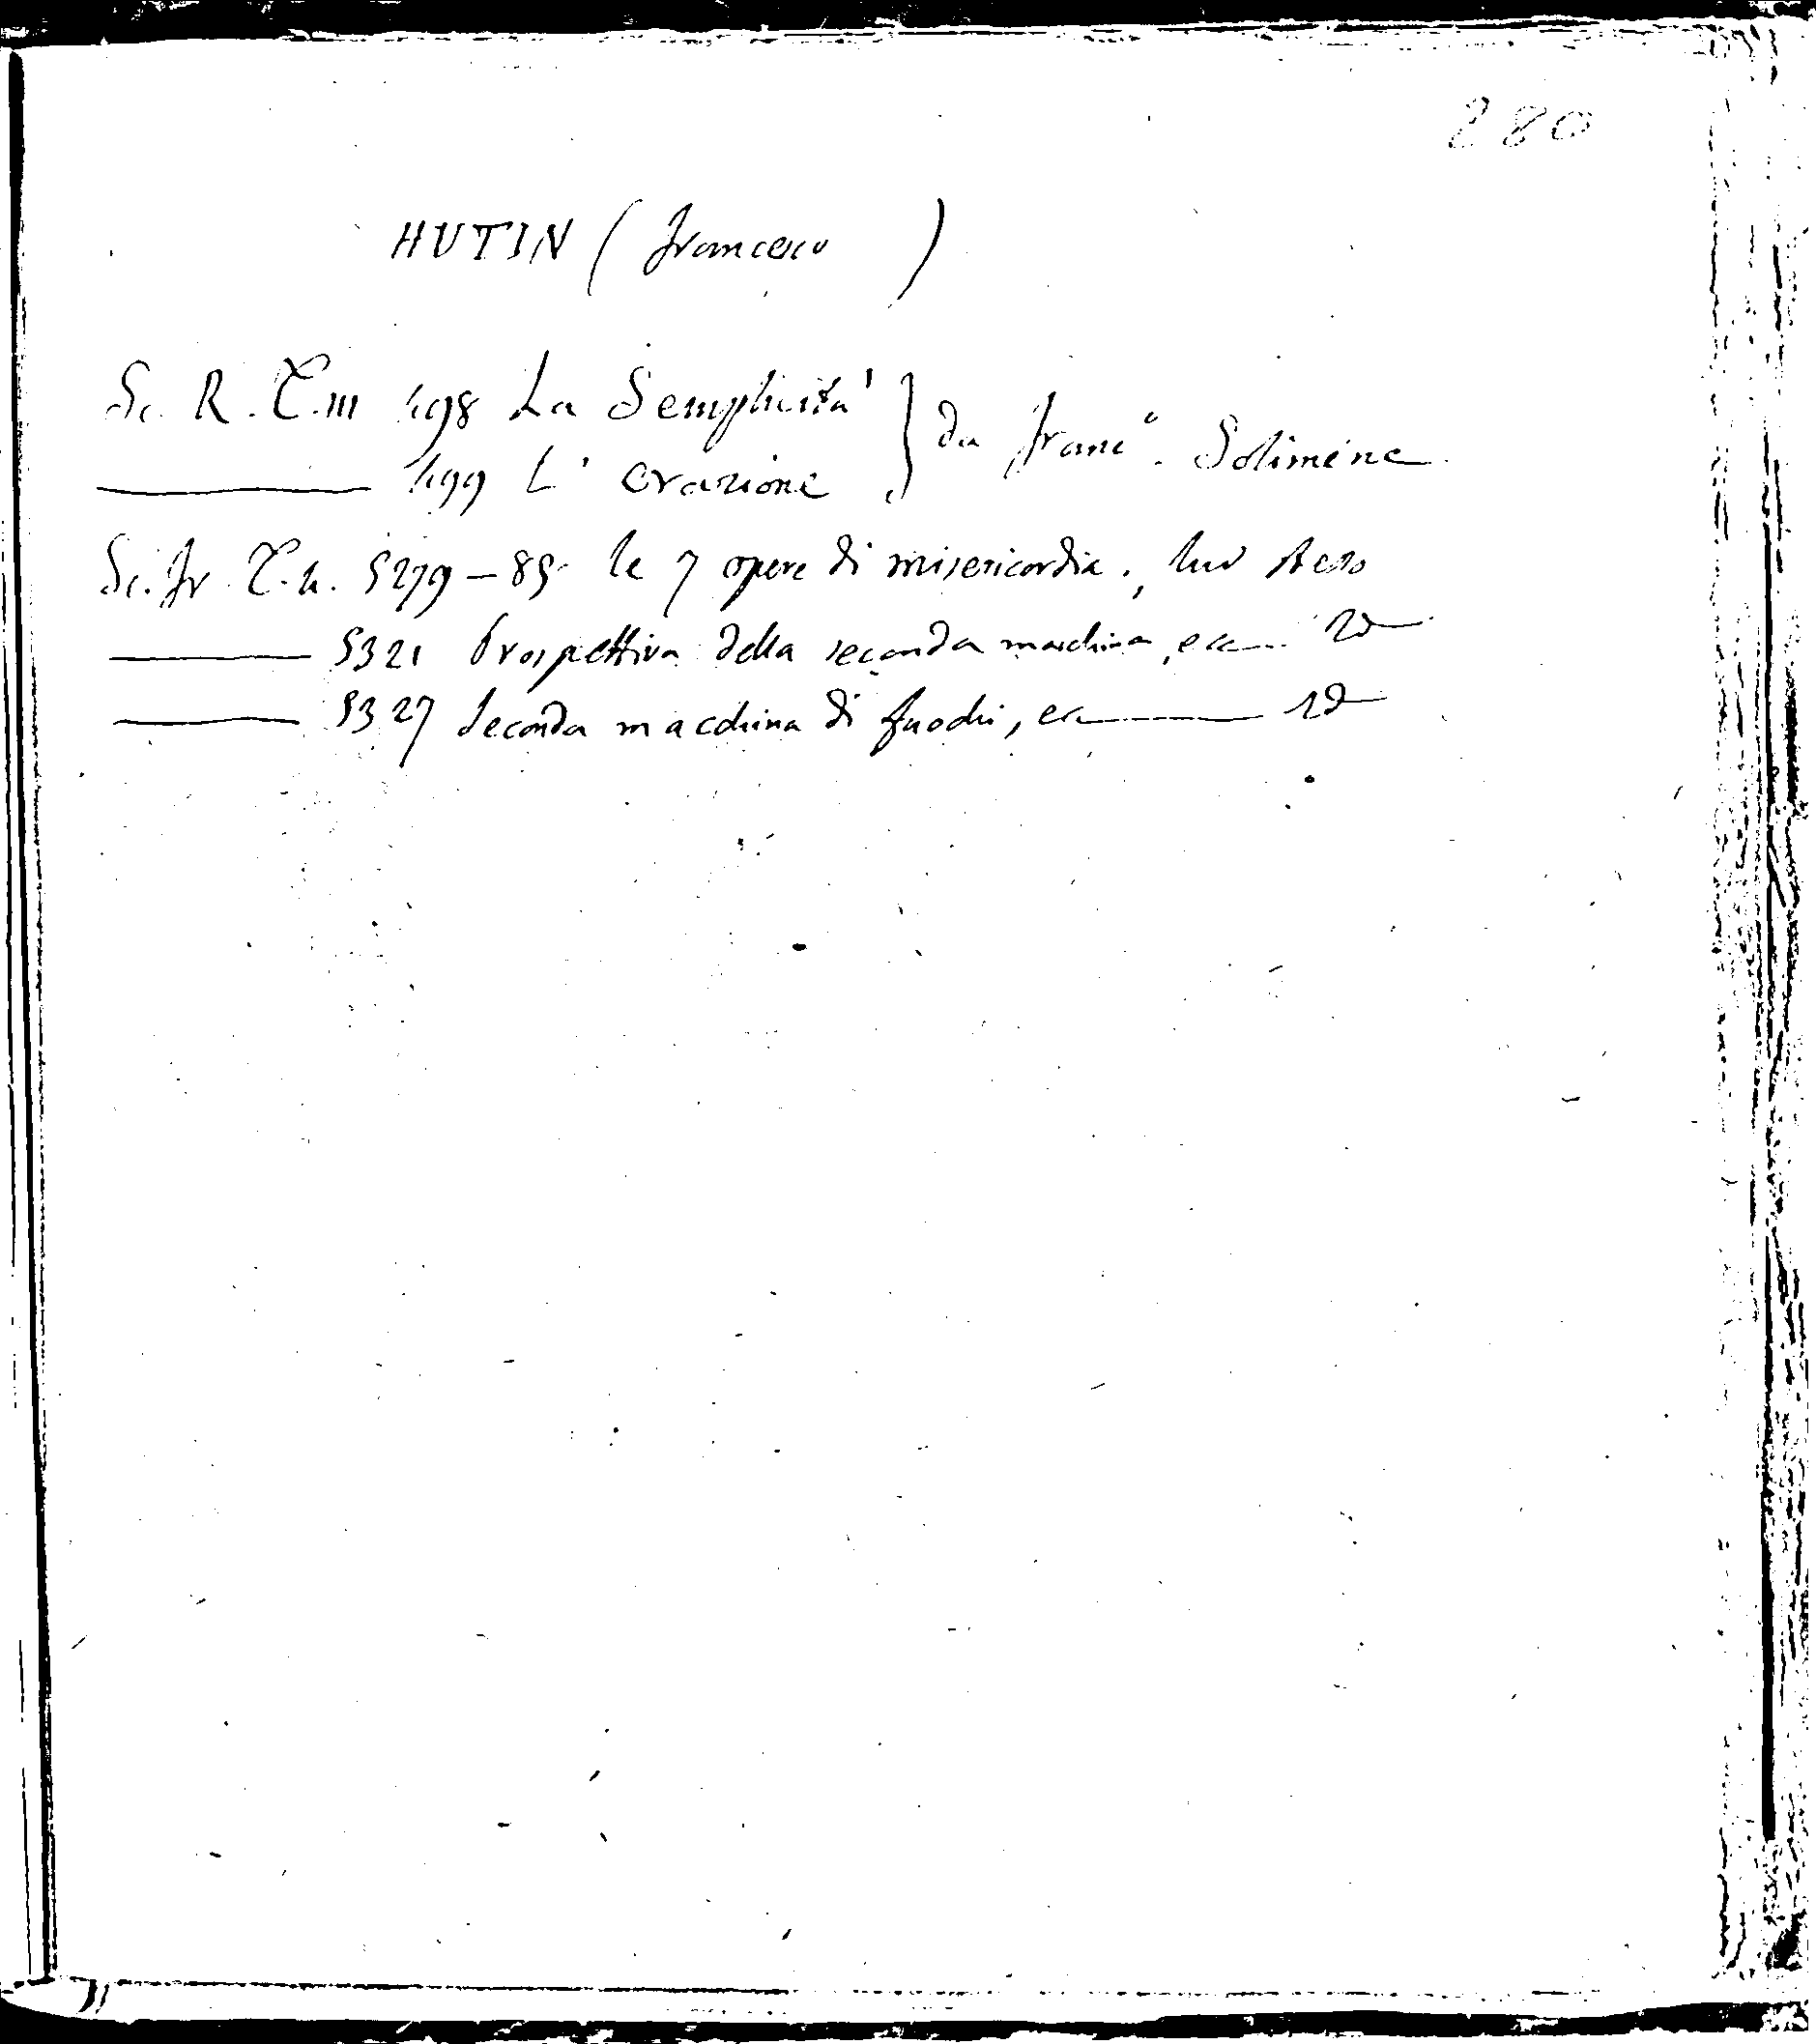 280
HUTIN (Francesco )
Sc. R. T. III 498 La Semplicità } da Franc.º Solimene
499 L' Orazione
Sc. Fr. T. 4. 5279-85 le 7 opere di misericordia, luo steso
5321 Prospettiva della seconda macchina, ec Id
5327 Seconda macchina di fuochi, ec Id